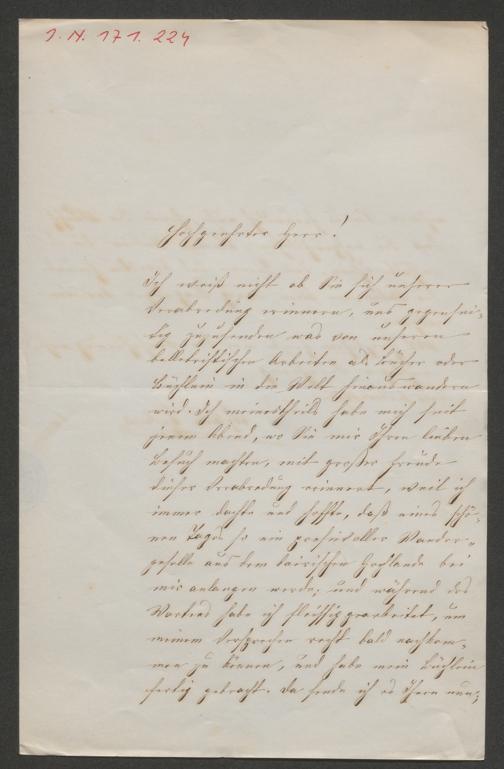 J. N. 171. 224
Hochgeehrter Herr!
Ich weiß nicht ob Sie sich unserer
Verabredung erinnern, uns gegensei-
tig zuzusenden was von unseren
belletristischen Arbeiten als Bücher oder
Büchlein in die Welt hinauswandern
wird. Ich meinestheils habe mich seit
jenem Abend, wo Sie mir Ihren lieben
Besuch machten, mit großer Freude
dieser Verabredung erinnert, weil ich
immer dachte und hoffte, daß eines schö-
nen Tages so ein poesievoller Wander-
geselle aus dem bairischen Hochlande bei
mir anlangen werde; und während des
Wartens habe ich fleißig gearbeitet, um
meinem Versprechen recht bald nachkom-
men zu können, und habe mein Büchlein
fertig gebracht. Da sende ich es Ihnen nun;